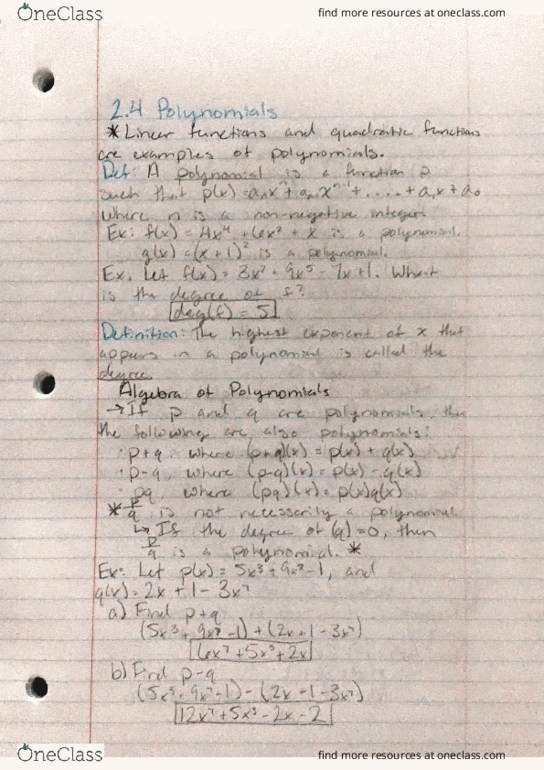 OneClass
find more resources at oneclass.com
2.4 Polynomials
*Linear functions and quadratic functions
are examples of polynomials.
Def: A polynomial is a function p
such that p(x)=aₙxⁿ+aₙ₋₁xⁿ⁻¹+....+a₁x+a₀
where n is a non-negative integer.
Ex: f(x) = 4x⁴ + 6x² + x is a polynomial.
g(x)=(x+1)² is a polynomial.
Ex. Let f(x)= 3x² + 9x⁵ - 7x+1. What
is the degree of f?
deg(f) = 5
Definition: The highest exponent of x that
appears in a polynomial is called the
degree.
Algebra of Polynomials
→If p and q are polynomials, then
the following are also polynomials:
· p+q, where (p+q)(x)=p(x)+q(x)
· p-q, where (p-q)(x)=p(x)-q(x)
· pq, where (pq)(x)=p(x)q(x)
* p/q is not necessarily a polynomial.
↳ If the degree of (q)=0, then
p/q is a polynomial. *
Ex: Let p(x)=5x³+9x²-1, and
q(x)=2x+1-3x²
a) Find p+q
(5x³+9x²-1)+(2x+1-3x²)
6x²+5x³+2x
b) Find p-q
(5x³+9x²-1)-(2x+1-3x²)
12x²+5x³-2x-2
OneClass
find more resources at oneclass.com